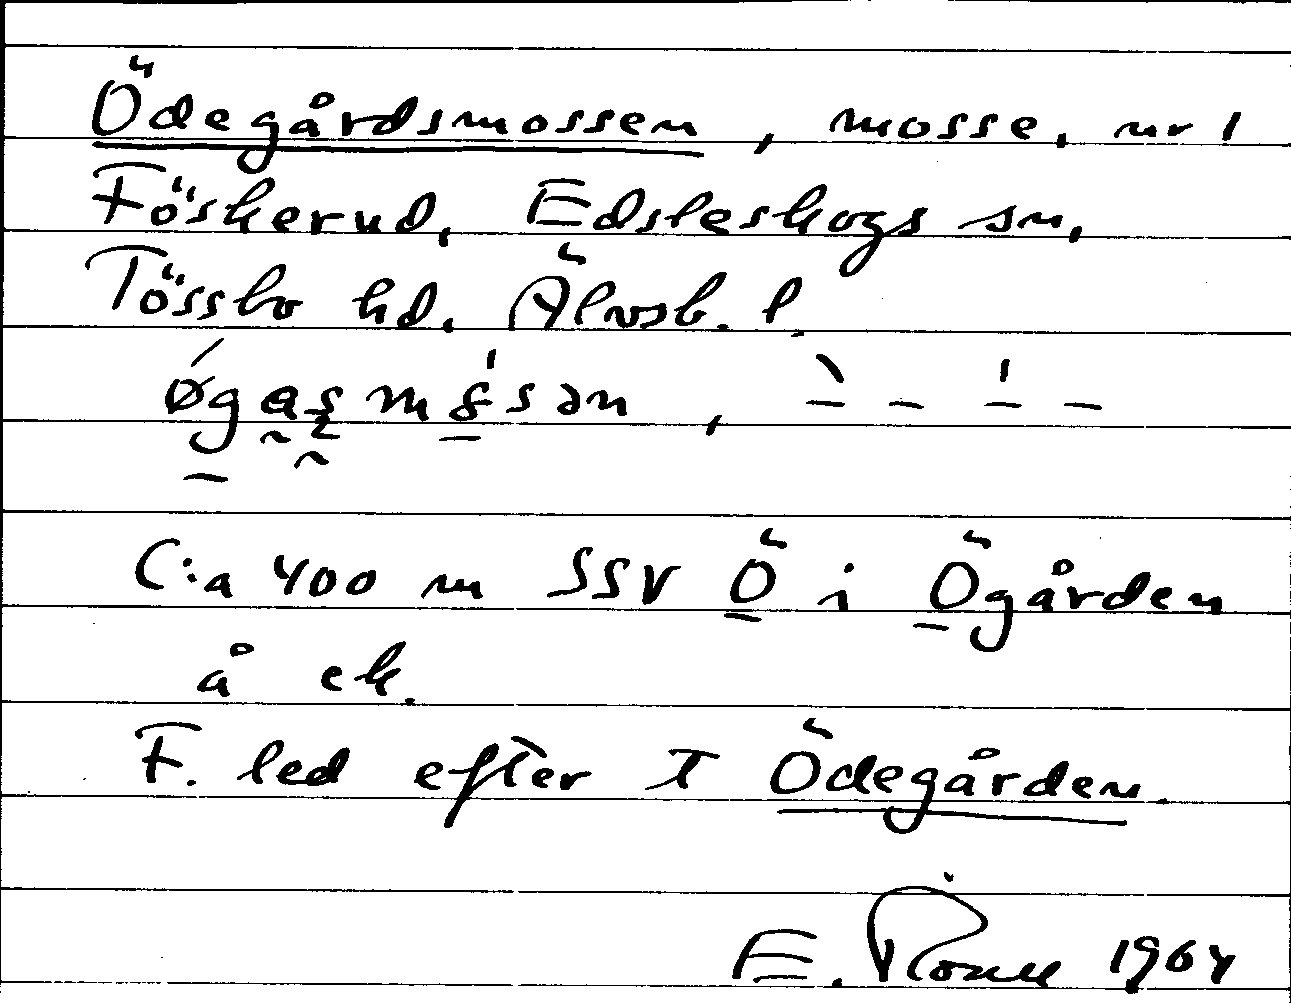 Ödegårdsmossen, mosse, nr 1
Föskerud, Edsleskogs sn,
Tössbo hd. Älvsb. l.
C:a 400 m SSV Ö i Ögården
å ek.
F. led efter T Ödegården.
E. 1964